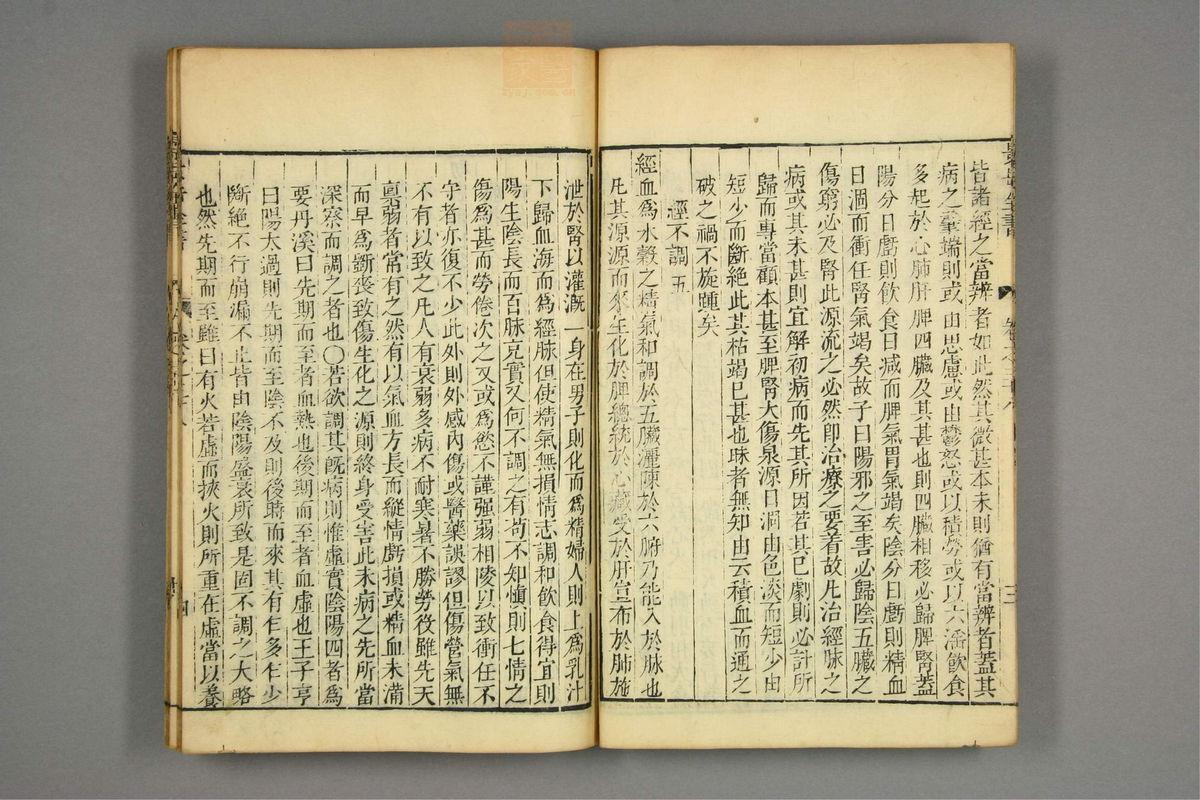 皆諸經之當辨者如此然其微甚本末則猶有當辨者蓋其
病之肇端則或由思慮或由鬱怒或以積勞或以六淫飲食
多起於心肺肝脾四臟及其甚也則四臟相移必歸脾腎蓋
陽分日虧則飲食日減而脾氣胃氣竭矣陰分日虧則精血
日涸而衝任腎氣竭矣故予曰陽邪之至害必歸陰五臟之
傷窮必及腎此源流之必然即治療之要著故凡治經脉之
病或其未甚則宜解初病而先其所因若其已劇則必計所
歸而專當顧本甚至脾腎大傷泉源日涸由色淡而短少由
短少而斷絕此其枯竭已甚也昧者無知由云積血而通之
破之禍不旋踵矣
經不調 五
經血為水穀之精氣和調於五臟灑陳於六腑乃能入於脉也
凡其源源而來生化於脾總統於心藏受於肝宣布於肺施
泄於腎以灌溉一身在男子則化而為精婦人則上為乳汁
下歸血海而為經脉但使精氣無損情志調和飲食得宜則
陽生陰長而百脉充實又何不調之有茍不知慎則七情之
傷為甚而勞倦次之又或為慾不謹强弱相陵以致衝任不
守者亦復不少此外則外感內傷或醫藥誤謬但傷營氣無
不有以致之凡人有衰弱多病不耐寒暑不勝勞役雖先天
稟弱者常有之然有以氣血方長而縱情虧損或精血未滿
而早為斵喪致傷生化之源則終身受害此未病之先所當
深察而調之者也〇若欲調其既病則惟虛實陰陽四者為
要丹溪曰先期而至者血熱也後期而至者血虛也王子亨
曰陽太過則先期而至陰不及則後時而來其有乍多乍少
斷絕不行崩漏不止皆由陰陽盛衰所致是固不調之大略
也然先期而至雖曰有火若虛而挾火則所重在虛當以養